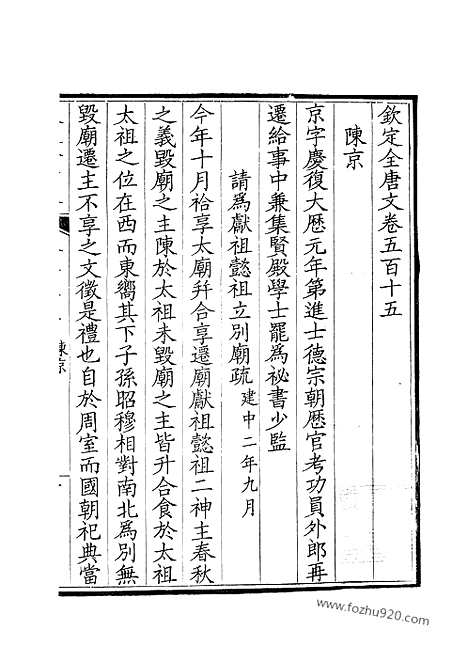 欽定全唐文卷五百十五
陳京
京字慶復大歷元年第進士德宗朝歷官考功員外郎再
遷給事中兼集賢殿學士罷為祕書少監
請為獻祖懿祖立別廟疏 建中二年九月
今年十月祫享太廟幷合享遷廟獻祖懿祖二神主春秋
之義毀廟之主陳於太祖未毀廟之主皆升合食於太祖
太祖之位在西而東嚮其下子孫昭穆相對南北為別無
毀廟遷主不享之文徵是禮也自於周室而國朝祀典當
陳京
www.fozhu920.com